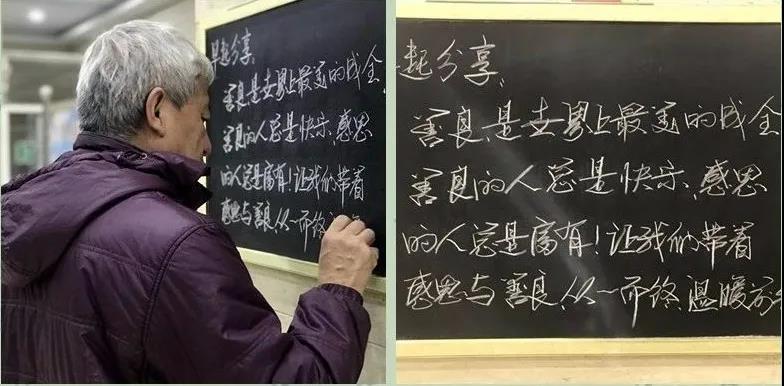 早起分享,
善良是世界上最美的成全,
善良的人总是快乐,感恩
的人总是富有!让我们带着
感恩与善良从一而终
起分享,
善良,是世界上最美的成全
善良的人总是快乐,感恩
的人总是富有!让我们带着
感恩与善良,从一而终,温暖